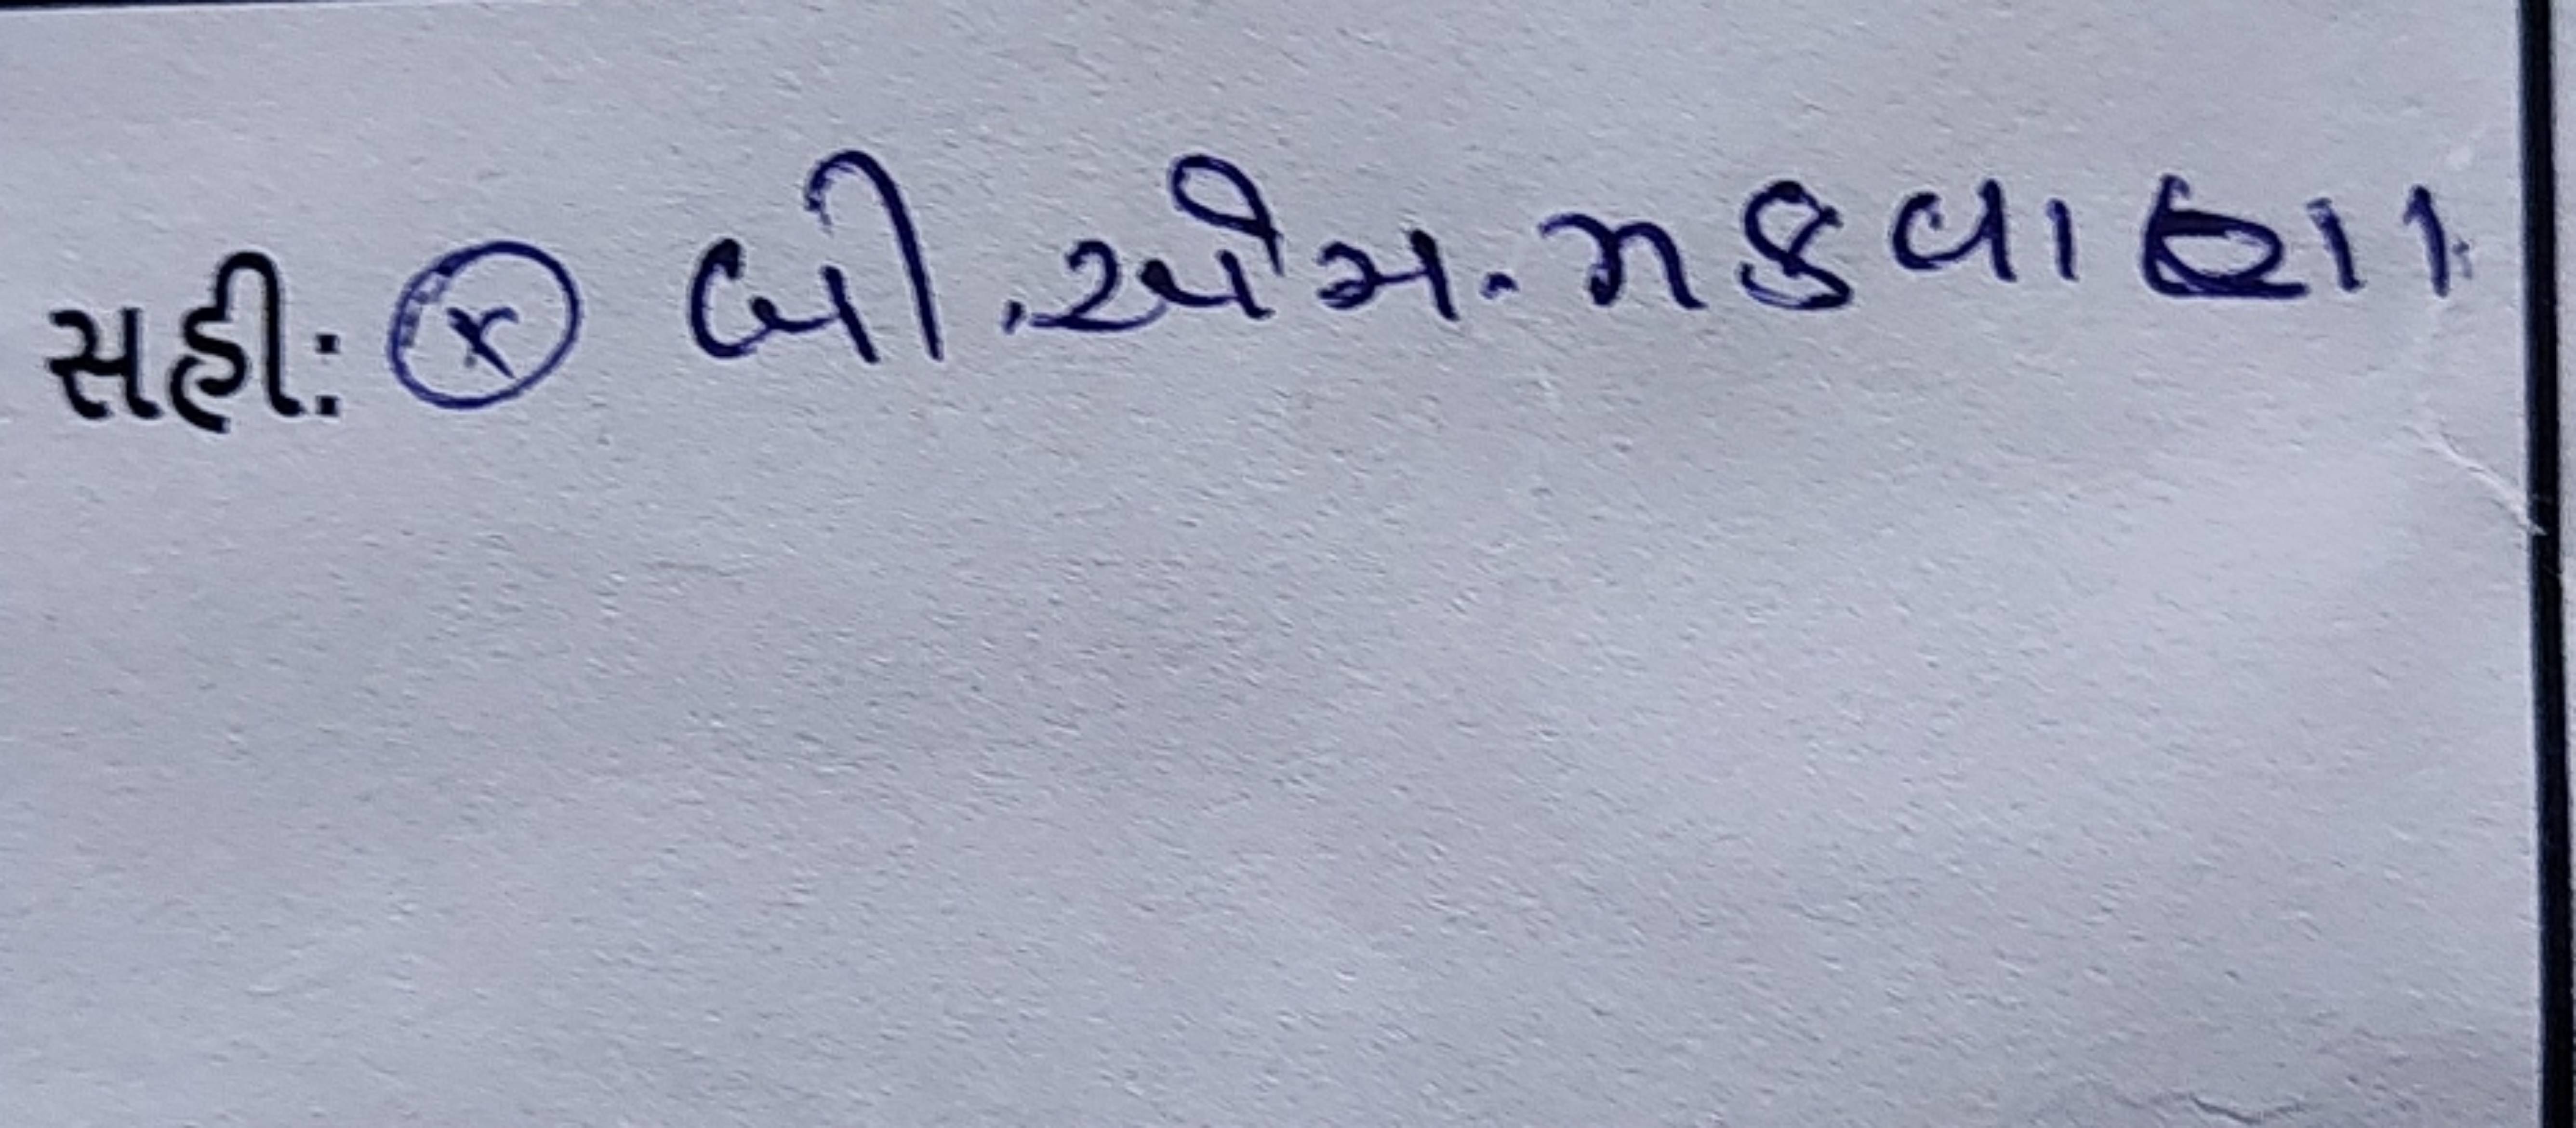 સહી: ⓧ બી.એમ.મકવાણા